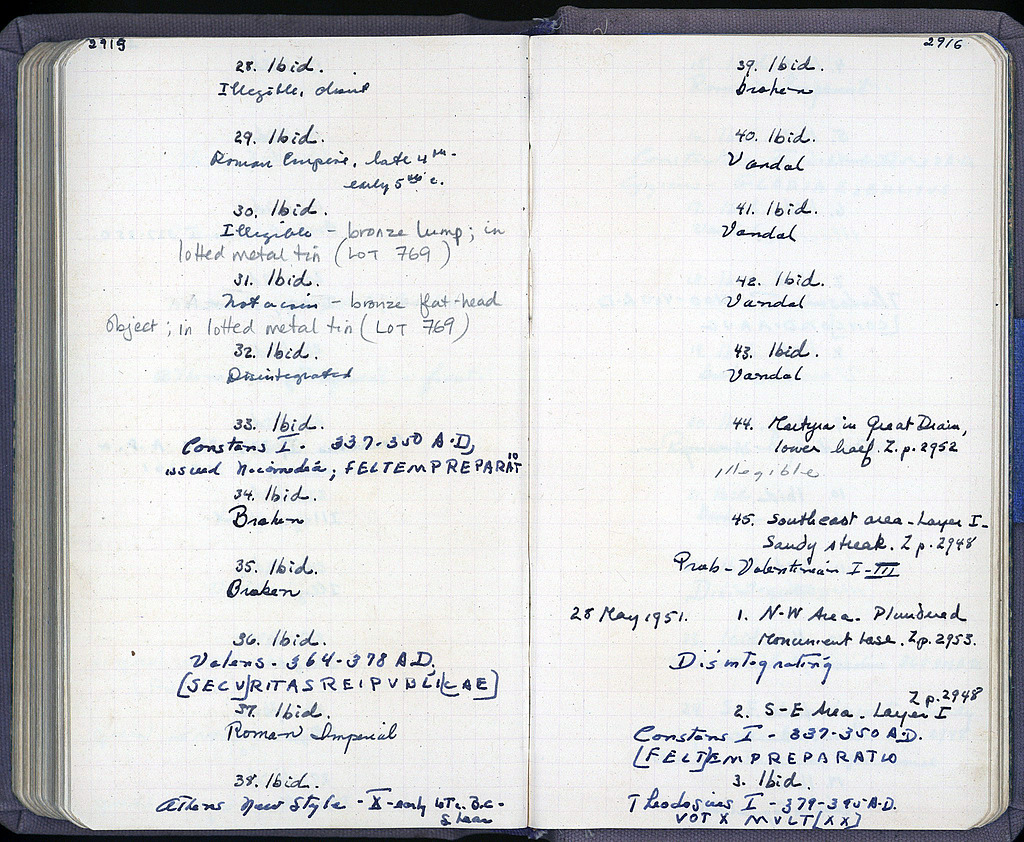 2915
28. Ibid.
Illegible, disint
29. Ibid.
Roman Empire, late 4th-
early 5th c.
30. Ibid.
Illegible - bronze lump; in
lotted metal tin (LOT 769)
31. Ibid.
Not a coin - bronze flat-head
object; in lotted metal tin (LOT 769)
32. Ibid.
Disintegrated
33. Ibid.
Constans I - 337-350 A.D,
issued Nicomedia; FELTEMPREPARATIO
34. Ibid.
Broken
35. Ibid.
Broken
36. Ibid.
Valens - 364-378 A.D.
[SECV]RITAS REIPVBLI[CAE]
37. Ibid.
Roman Imperial
38. Ibid.
Athens New Style - X - early 1st c. B.C.-
2916
39. Ibid.
broken
40. Ibid.
Vandal
41. Ibid.
Vandal
42. Ibid.
Vandal
43. Ibid.
Vandal
44. Martyra in Great Drain,
lower half. Z p. 2952
illegible
45. Southeast area - Layer I -
Sandy streak. Z p. 2948
Prob - Valentinian I-III
28 May 1951.
1. N-W Area. Plundered
Monument base. Z p. 2953.
Disintegrating
Z p. 2948
2. S-E Area. Layer I
Constans I - 337-350 A.D.
[FELT]EMPREPARATIO
3. Ibid.
Theodosius I - 379-395 A.D.
VOT X MVLT[XX]